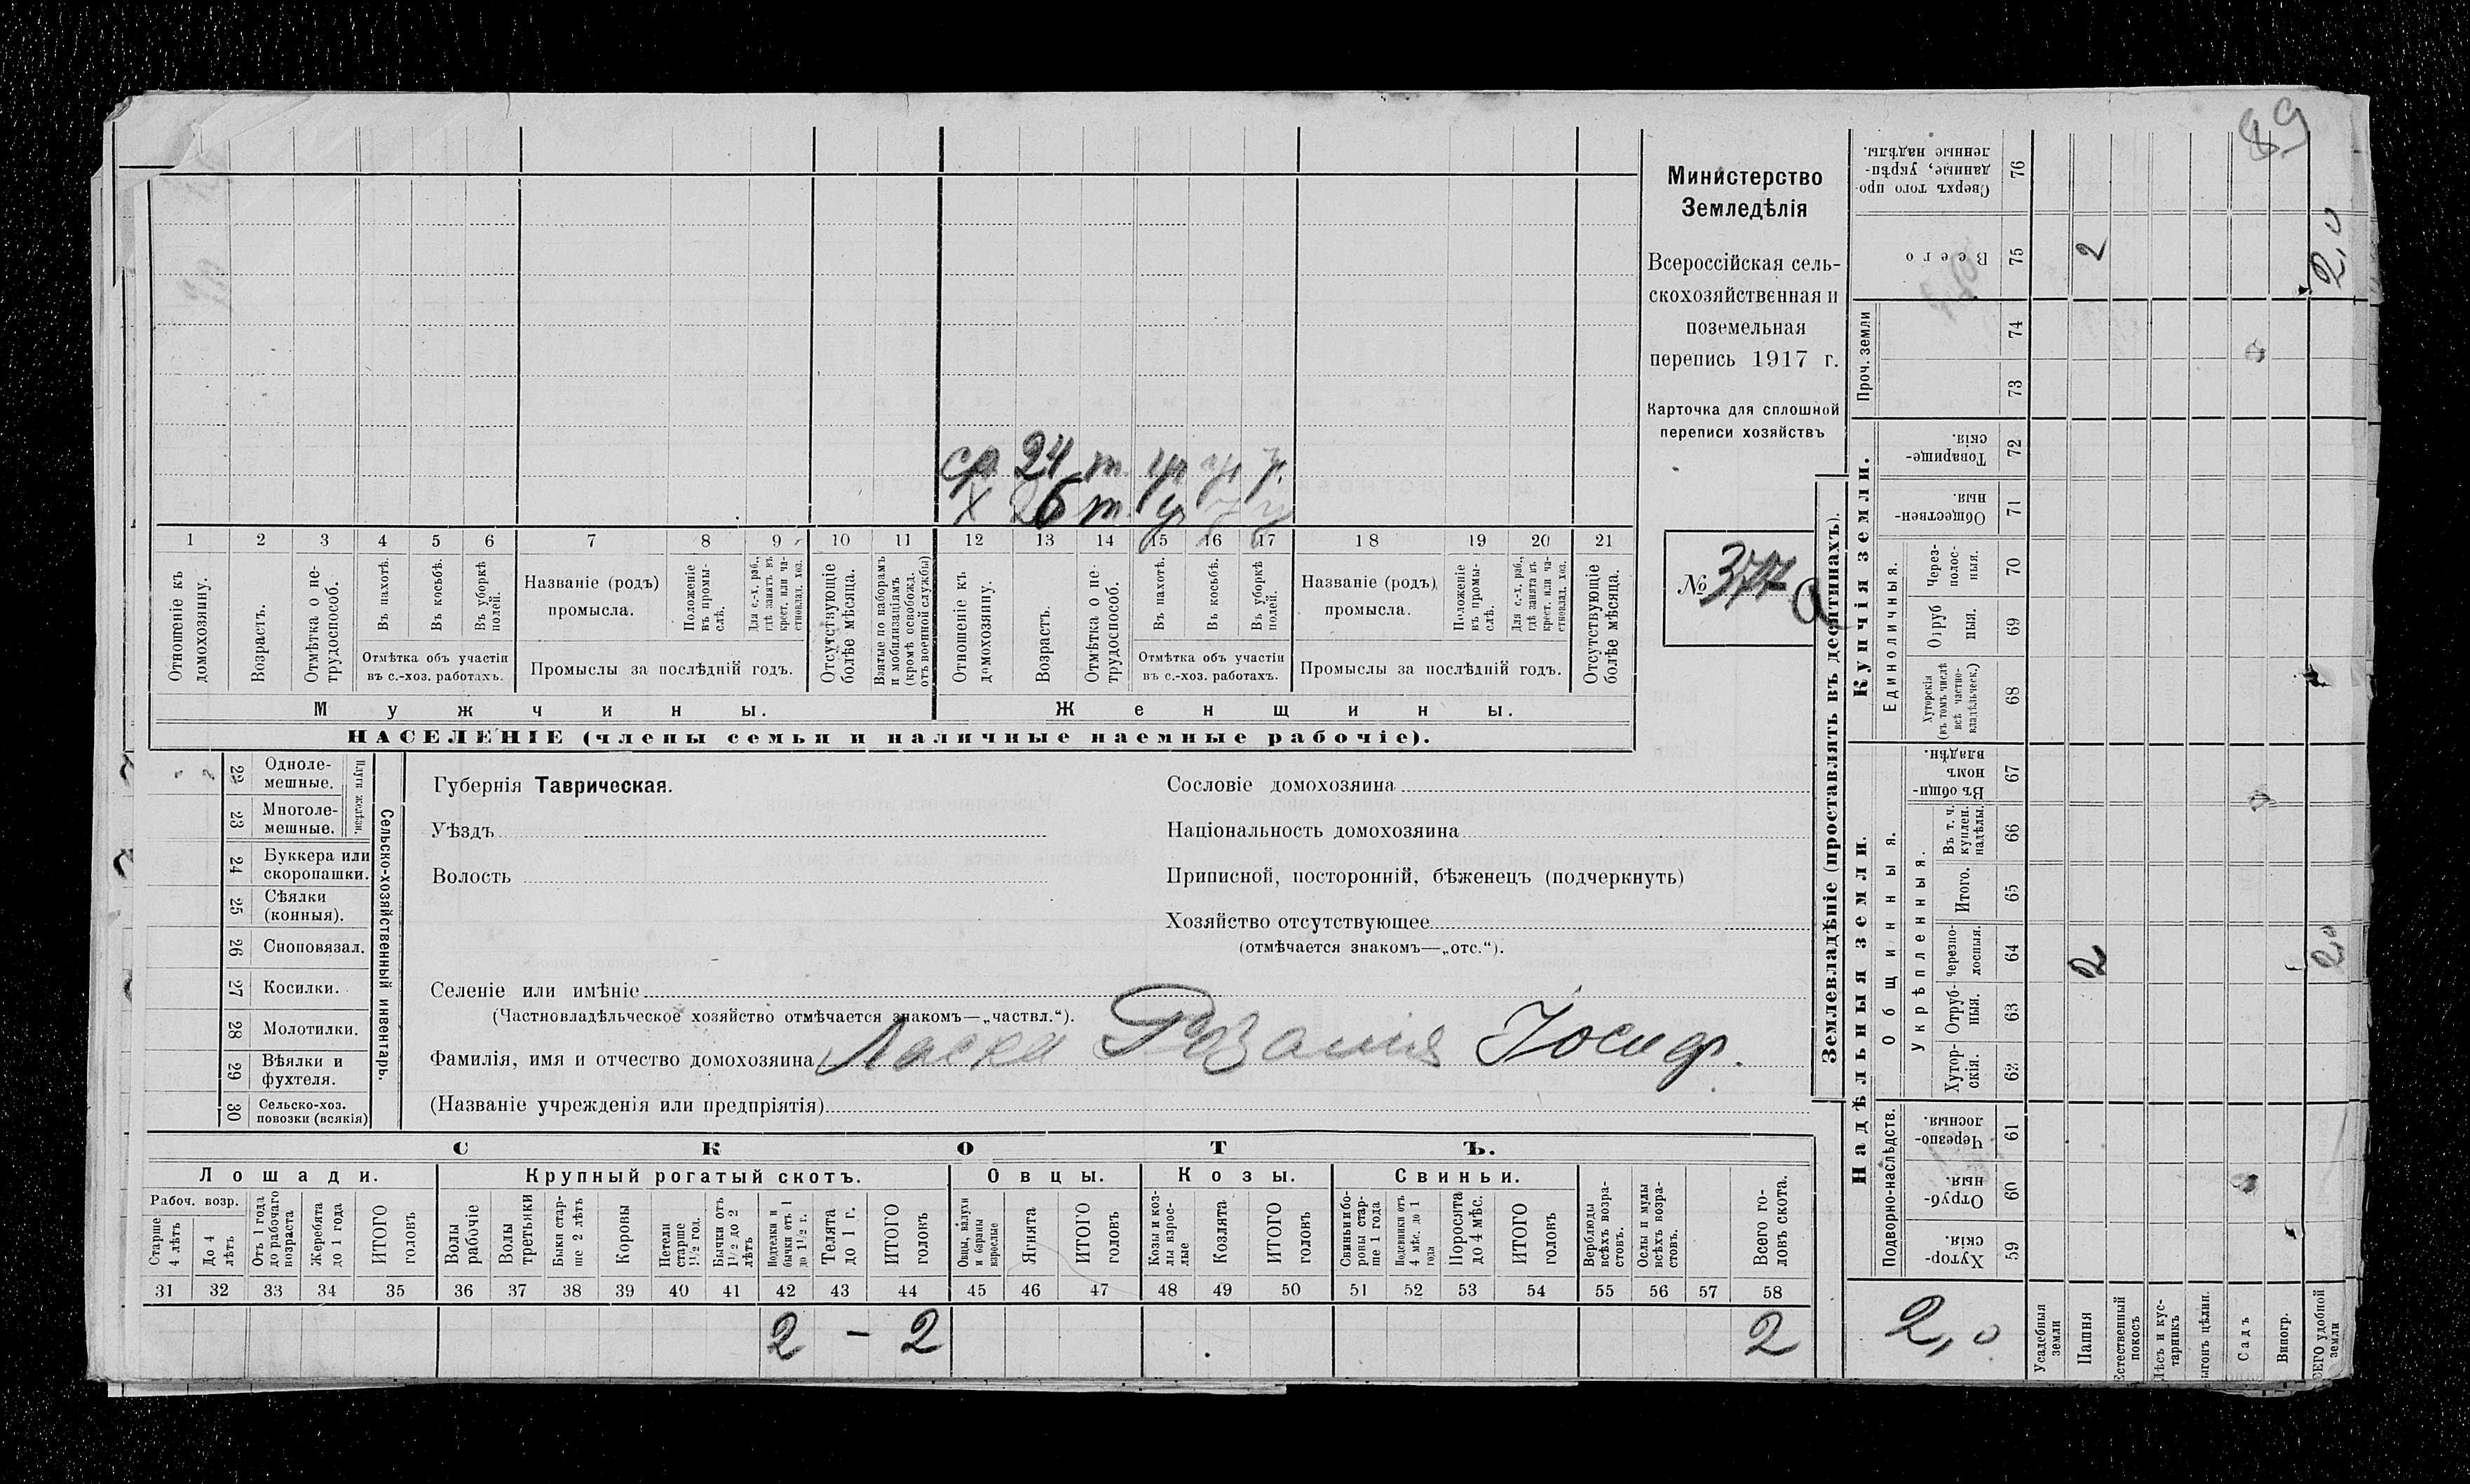 89
Министерство
Земледѣлія
Всероссійская сель-
скохозяйственная и
поземельная
перепись 1917 г.
Карточка для сплошной
переписи хозяйствъ
№ 377 а
ср 24 т. у у у.
х 26 т. у у у
1 2 3 4 5 6 7 8 9 10 11 12 13 14 15 16 17 18 19 20 21
Отношеніе къ домохозяину.
Возрастъ.
Отмѣтка о не-трудоспособ.
Въ пахотѣ.
Въ косьбѣ.
Въ уборкѣ полей.
Отмѣтка объ участіи
въ с.-хоз. работахъ.
Названіе (родъ)
промысла.
Положеніе въ промы-слѣ.
Для с.-х. раб., гдѣ занятъ въ крест. или ча-стновлад. хоз.
Промыслы за послѣдній годъ.
Отсутствующіе болѣе мѣсяца.
Взятые по наборамъ и мобилизаціямъ (кромѣ освобожд. отъ военной службы)
Отношеніе къ домохозяину.
Возрастъ.
Отмѣтка о не-трудоспособ.
Въ пахотѣ.
Въ косьбѣ.
Въ уборкѣ полей.
Отмѣтка объ участіи
въ с.-хоз. работахъ.
Названіе (родъ)
промысла.
Положеніе въ промы-слѣ.
Для с.-х. раб., гдѣ занята въ крест. или ча-стновлад. хоз.
Промыслы за послѣдній годъ.
Отсутствующіе болѣе мѣсяца.
Мужчины.
Женщины.
НАСЕЛЕНІЕ (члены семьи и наличные наемные рабочіе).
22 Одноле-мешные.
23 Многоле-мешные.
Плуги желѣзн.
24 Буккера или скоропашки.
25 Сѣялки (конныя).
26 Сноповязал.
27 Косилки.
28 Молотилки.
29 Вѣялки и фухтеля.
30 Сельско-хоз. повозки (всякія)
Сельско-хозяйственный инвентарь.
Губернія Таврическая.
Уѣздъ
Волость
Сословіе домохозяина
Національность домохозяина
Приписной, посторонній, бѣженецъ (подчеркнуть)
Хозяйство отсутствующее
(отмѣчается знакомъ—„отс.“).
Селеніе или имѣніе
(Частновладѣльческое хозяйство отмѣчается знакомъ—„частвл.“).
Фамилія, имя и отчество домохозяина Ласка Розалия Іосиф.
(Названіе учрежденія или предпріятія)
СКОТЪ.
Лошади.
Крупный рогатый скотъ.
Овцы.
Козы.
Свиньи.
Рабоч. возр.
Старше 4 лѣтъ
До 4 лѣтъ
Отъ 1 года до рабочаго возраста
Жеребята до 1 года
ИТОГО головъ
Волы рабочіе
Волы третьяки
Быки стар-ше 2 лѣтъ
Коровы
Нетели старше 1½ год.
Бычки отъ 1½ до 2 лѣтъ
Подтелки и бычки отъ 1 до 1½ г.
Телята до 1 г.
ИТОГО головъ
Овцы, валухи и бараны взрослые
Ягнята
ИТОГО головъ
Козы и коз-лы взрос-лые
Козлята
ИТОГО головъ
Свиньи и бо-ровы стар-ше 1 года
Подсвинки отъ 4 мѣс. до 1 года
Поросята до 4 мѣс.
ИТОГО головъ
Верблюды всѣхъ возра-стовъ.
Ослы и мулы всѣхъ возра-стовъ.
Всего го-ловъ скота.
31 32 33 34 35 36 37 38 39 40 41 42 43 44 45 46 47 48 49 50 51 52 53 54 55 56 57 58
2 – 2 2
Землевладѣніе (проставлять въ десятинахъ).
Надѣльныя земли.
Купчія земли.
Проч. земли
Подворно-наслѣдств.
Общинныя.
Укрѣпленныя.
Единоличныя.
Сверхъ того про-данные, укрѣп-ленные надѣлы. 76
Всего 75 2 2,0
74
73
Товарище-скія. 72
Обществен-ныя. 71
Через-полос-ныя. 70
Отруб ныя. 69
Хуторскія (въ томъ числѣ всѣ частно-владѣльческ.) 68
Въ общи-номъ владѣн. 67
Въ т. ч. куплен. надѣлы. 66
Итого. 65
Черезпо-лосныя. 64 2 2,0
Отруб-ныя. 63
Хутор-скія. 62
Черезпо-лосныя. 61
Отруб-ныя. 60
Хутор-скія. 59
2,0
Усадебныя земли
Пашня
Естественный покосъ
Лѣсъ и кус-тарникъ
ыгонъ цѣлин.
Садъ
Виногр.
СЕГО удобной земли